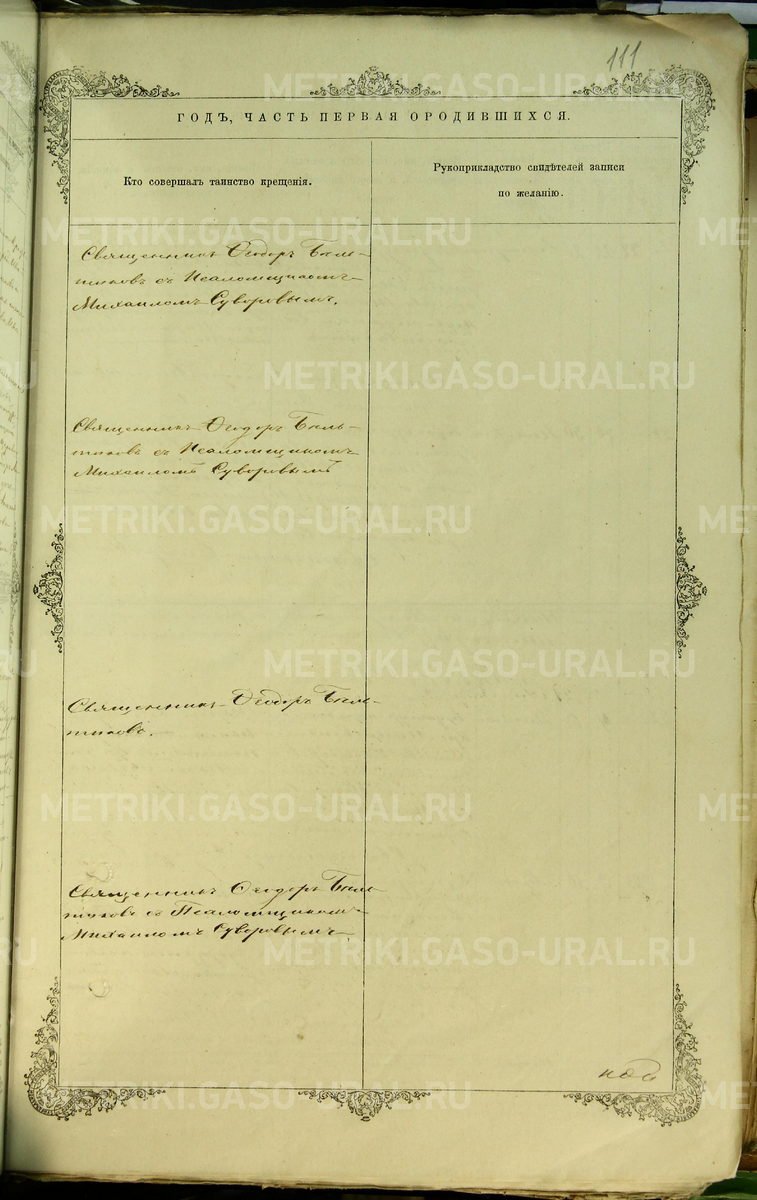 111
ГОДЪ, ЧАСТЬ ПЕРВАЯ О РОДИВШИХСЯ.
Кто совершалъ таинство крещенія.
Рукоприкладство свидѣтелей записи
по желанію.
Священникъ Ѳеодоръ
съ Псаломщикомъ
Михаиломъ Суворовымъ.
Священникъ Ѳеодоръ
съ Псаломщикомъ
Михаиломъ Суворовымъ
Священникъ Ѳеодоръ
Священникъ Ѳеодоръ
съ Псаломщикомъ
Михаиломъ Суворовымъ
METRIKI.GASO-URAL.RU